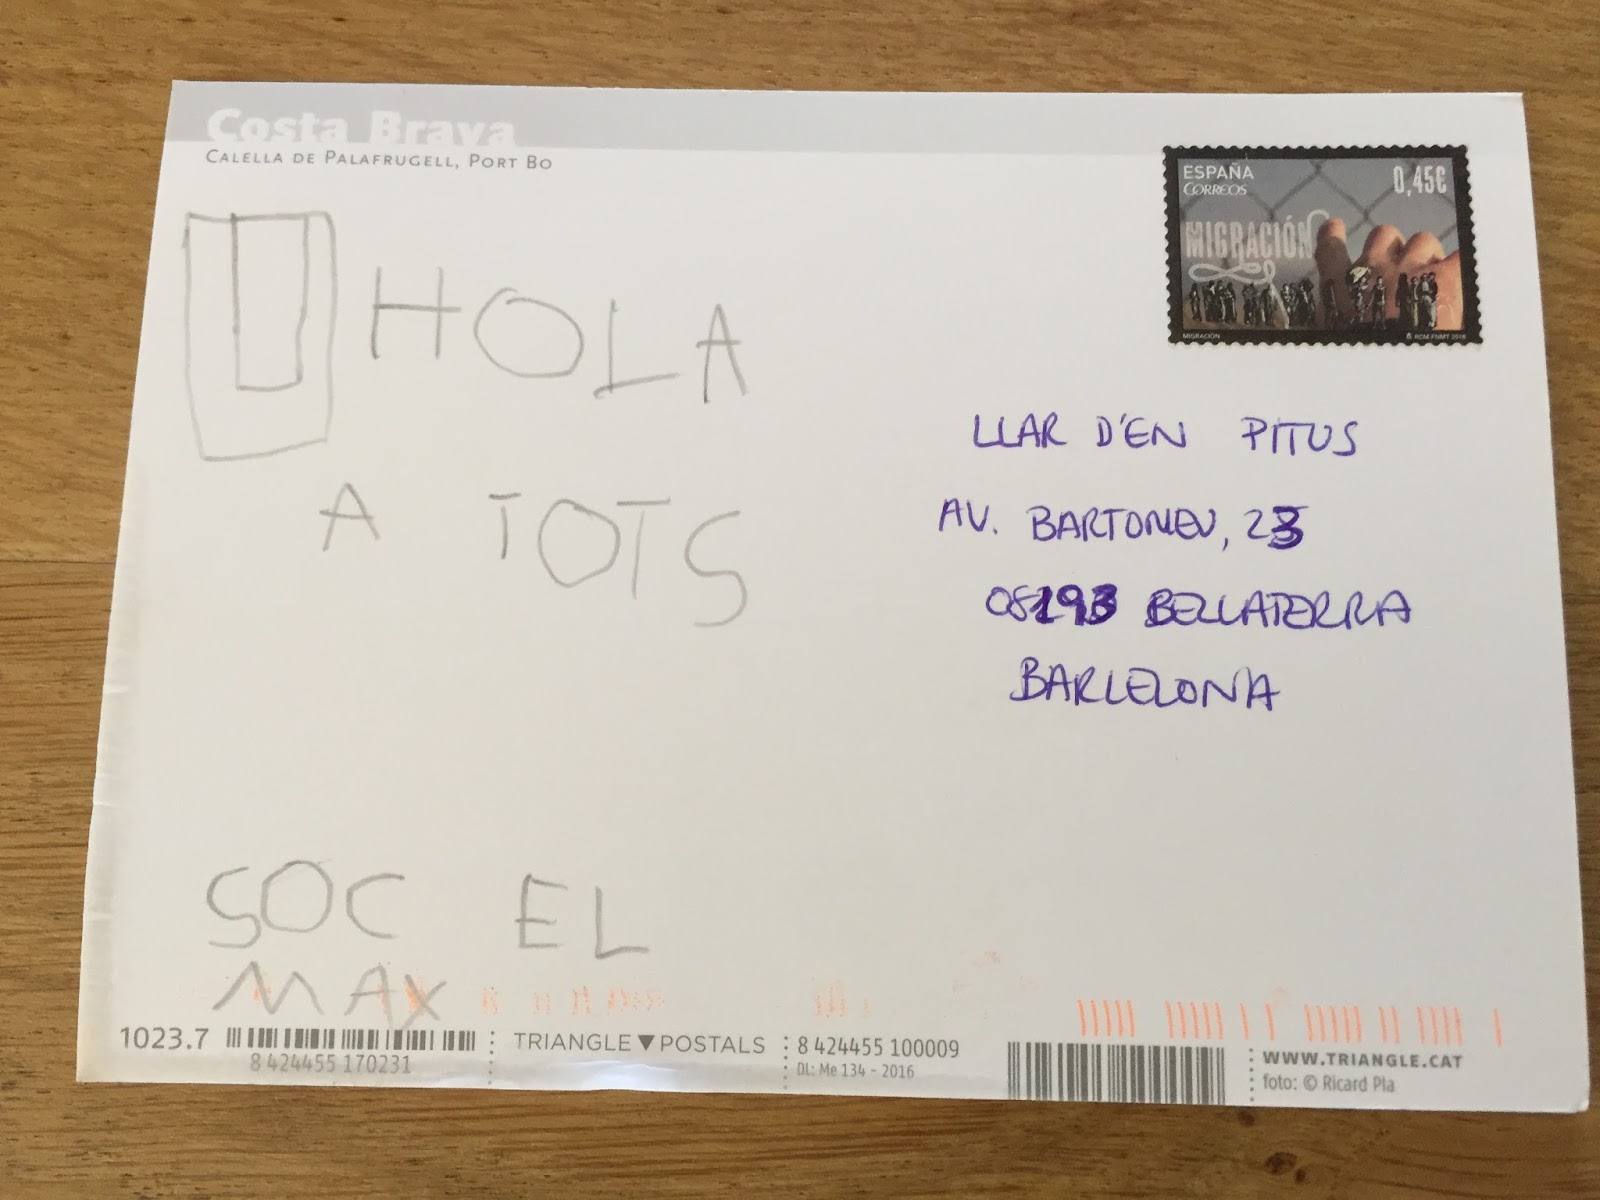 Costa Brava
CALELLA DE PALAFRUGELL, PORT BO
ESPAÑA
CORREOS
0,45€
MIGRACIÓN
MIGRACIÓN
RCM-FNMT 2016
HOLA
A TOTS
SOC EL
MAX
LLAR D'EN PITUS
AV. BARTOMEU, 23
08193 BELLATERRA
BARCELONA
1023.7
8 424455 170231
TRIANGLE▼POSTALS
8 424455 100009
DL: Me 134 - 2016
WWW.TRIANGLE.CAT
foto: © Ricard Pla